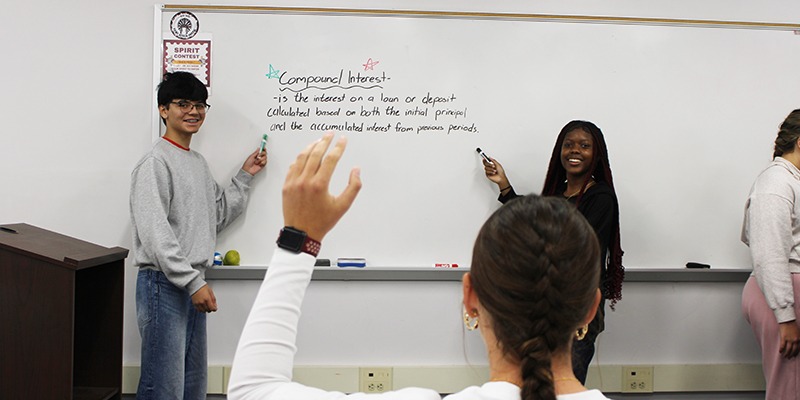 SPIRIT
CONTEST
Compound Interest-
-is the interest on a loan or deposit
calculated based on both the initial principal
and the accumulated interest from previous periods.